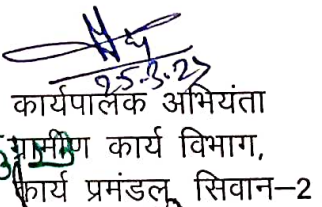 25.3.27
कार्यपालक अभियंता
ग्रामीण कार्य विभाग,
कार्य प्रमंडल, सिवान-2